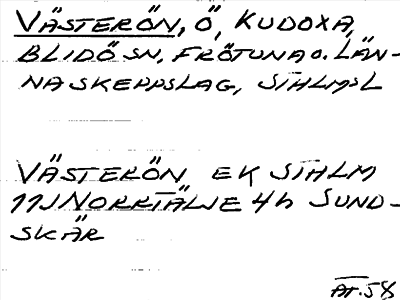 VÄSTERÖN, Ö, KUDOXA,
BLIDÖ SN, FRÖTUNA O. LÄN-
NA SKEPPSLAG, STHLMS L
VÄSTERÖN EK STHLM
11J NORRTÄLJE 4h SUND-
SKÄR
AT. 58